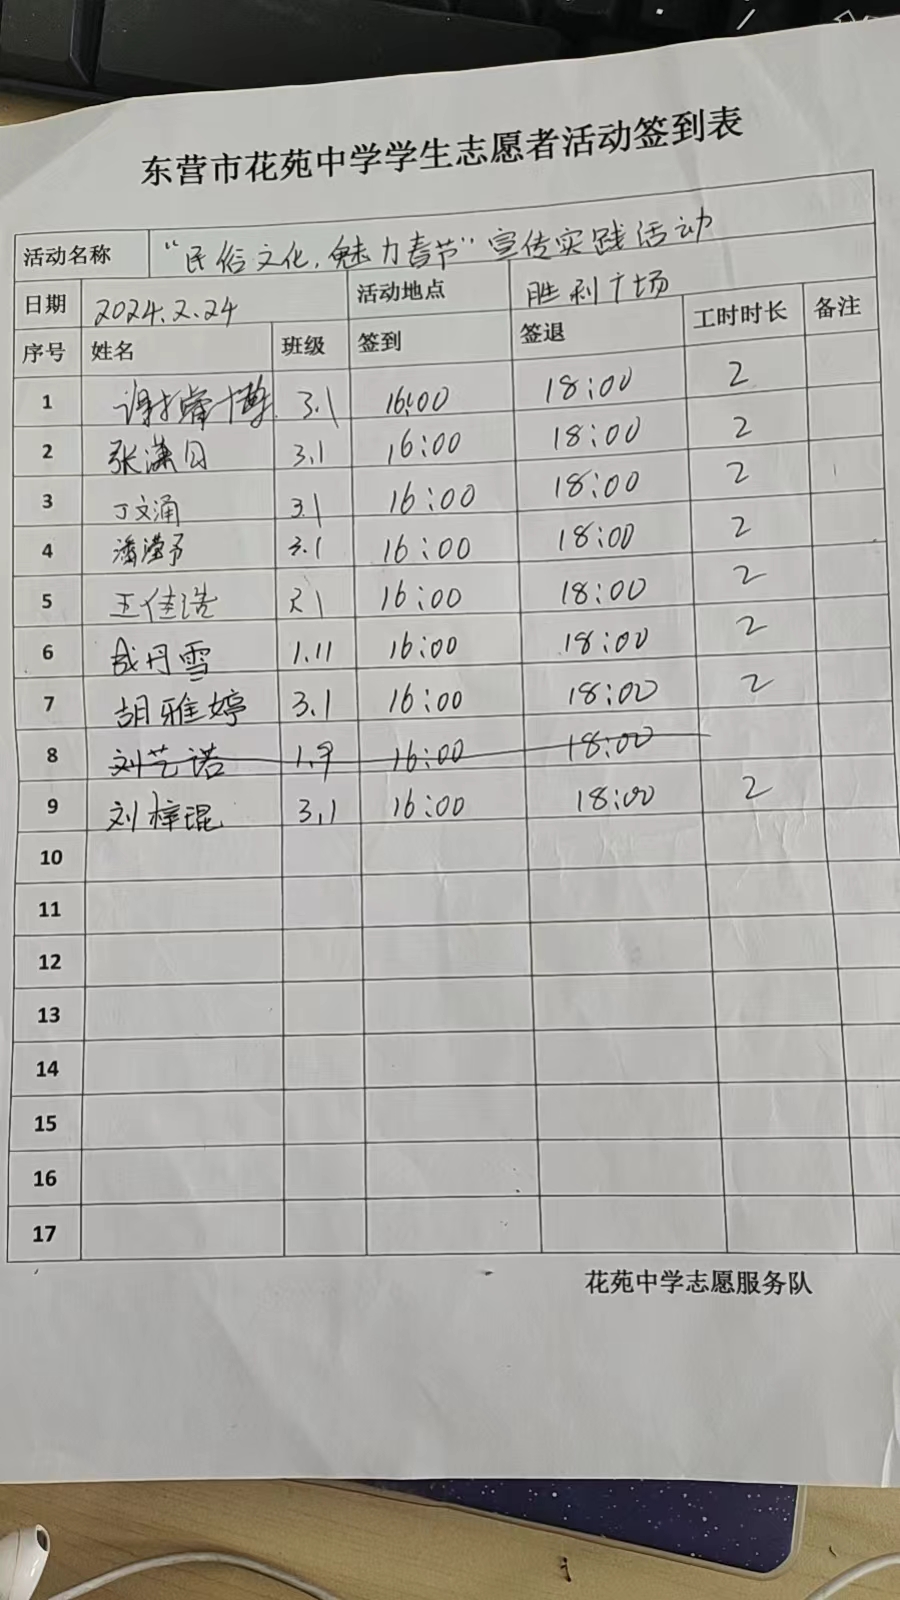 东营市花苑中学学生志愿者活动签到表
活动名称 “民俗文化，魅力春节”宣传实践活动
日期 2024.2.24 活动地点 胜利广场
序号 姓名 班级 签到 签退 工时时长 备注
1 3.1 16:00 18:00 2
2 张潇 3.1 16:00 18:00 2
3 丁文涌 3.1 16:00 18:00 2
4 潘滢予 3.1 16:00 18:00 2
5 王佳浩 16:00 18:00 2
6 丹雪 1.11 16:00 18:00 2
7 胡雅婷 3.1 16:00 18:00 2
8 刘艺诺 1.9 16:00 18:00
9 刘梓琨 3.1 16:00 18:00 2
10
11
12
13
14
15
16
17
花苑中学志愿服务队